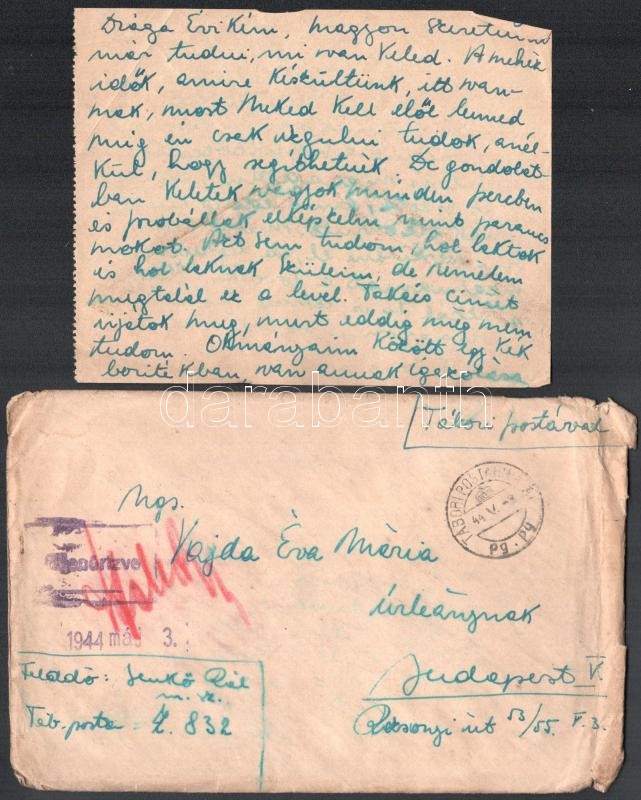 Drága Évikém, nagyon szeretném
már tudni, mi van Veled. A nehéz
idők, amire készültünk, itt van-
nak, most Neked kell elől lenned
míg én csak végülni tudok, anél-
kül, hogy segíthetnék. De gondolat-
ban Veletek vagyok minden percben
és probállak elképzelni mint parancs
nokot. Azt sem tudom, hol laktok
és hol laknak Szüleim, de remélem
megtalál ez a levél. Takács címét
irjátok meg, mert eddig még nem
tudom. Okmányaim között egy kék
boritékban, van annak igazolása
darabanth.com
Tábori postával
TÁBORI POSTA
44 V.
Ngs.
Vajda Éva Mária
Úrleánynak
Budapest V.
Pozsonyi út 53/55. V. 3.
Ellenőrizve
1944 máj 3.
Feladó: Jenkő Pál
m. sz.
Tab. posta = L. 832